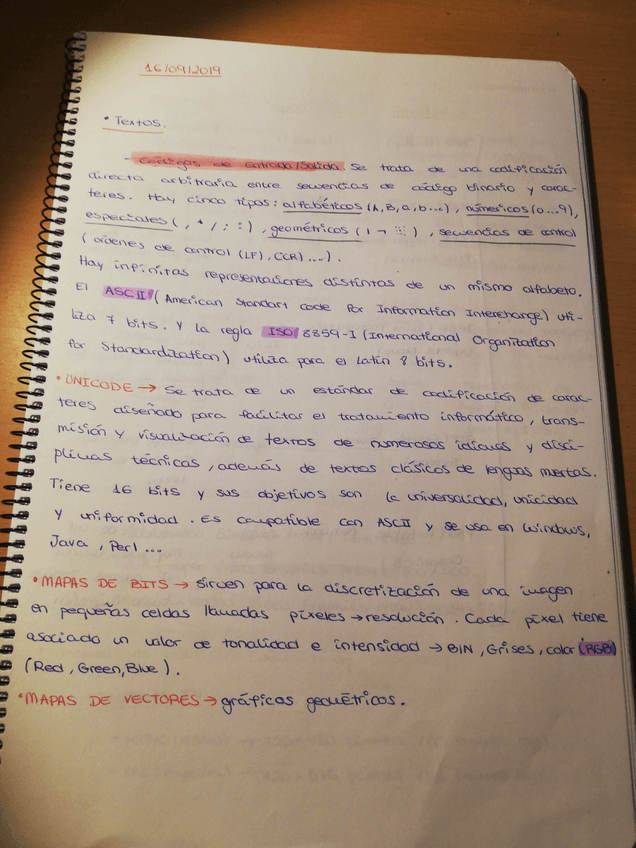 16/09/2019
• Textos.
- Códigos de Entrada/Salida Se trata de una codificación
directa arbitraria entre secuencias de código binario y carac-
teres. Hay cinco tipos: alfabéticos (A, B, a, b...), númesicos (0...9),
especiales (, * / ; :), geométricos (
), secuencias de control
(órdenes de control (LF), (CR)...).
Hay infinitas representaciones distintas de un mismo alfabeto.
El ASCII (American Standart Code for Information Interchange) uti-
liza 7 bits. Y la regla ISO 8859-I (International Organization
for Standardization) utiliza para el Latin 8 bits.
• UNICODE → Se trata de un estándar de codificación de carac-
teres diseñado para facilitar el tratamiento informático, trans-
misión y visualización de textos de numerosos idiomas y disci-
plinas técnicas, además de textos clásicos de lenguas muertas.
Tiene 16 bits y sus objetivos son la universalidad, unicidad
y uniformidad. Es compatible con ASCII y se usa en Windows,
Java, Perl...
• MAPAS DE BITS → sirven para la discretización de una imagen
en pequeñas celdas llamadas píxeles → resolución. Cada píxel tiene
asociado un valor de tonalidad e intensidad → BIN, Grises, color (RGB)
(Red, Green, Blue).
• MAPAS DE VECTORES → gráficos geométricos.